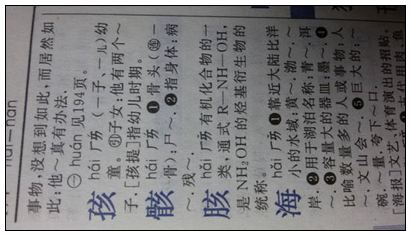 hai—han
事物，没想到如此，而居然如
此：他～真有办法．
㊀huán 见194页．
孩 hái ㄏㄞˊ（一子、一儿）幼
童．㊕子女：他有两个～
子．〔孩提〕指幼儿时期．
骸 hái ㄏㄞˊ ❶骨头（㊕一
骨）：尸～．❷指身体：病
～．残～．
胲 hǎi ㄏㄞˇ 有机化合物的一
类，通式 R—NH—OH，
是NH₂OH的烃基衍生物的
统称．
海 hǎi ㄏㄞˇ ❶靠近大陆比洋
小的水域：黄～．渤～．～
岸．❷用于湖泊名称：青～．洱
～．❸容量大的器皿：墨～．❹
比喻数量多的人或事物：人
～．文山会～．❺巨大的：～
碗．～量．夸下～口．
〔海报〕文艺、体育演出的招贴．